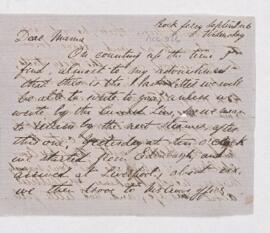 Rock Ferry September 6
Wednesday
Dear Mama
On counting up the time I
find almost to my astonishment
that this is the last letter we will
be able to write to you, unless we
write by the
to return by the next steamer, after
this one, Yesterday at ten o'clock
we started from Edinburgh, and
arrived at Liverpool, about six.
we then drove to